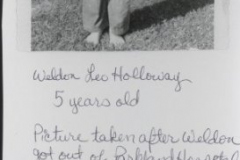 Weldon Leo Holloway
5 years old
Picture taken after Weldon
got out of Parkland Hospital